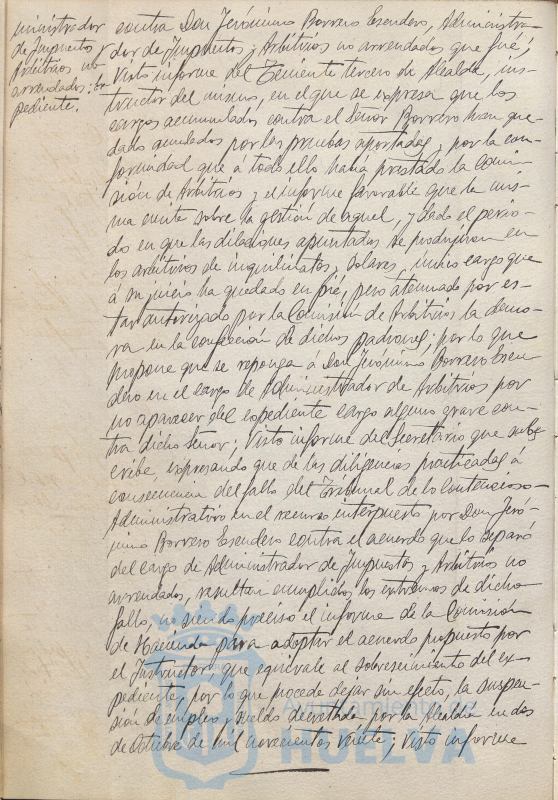 ministrador
de Impuestos y
Arbitrios no
arrendados: ex
pediente.
contra Don Jerónimo Borrero Escudero, Administra-
dor de Impuestos y Arbitrios no arrendados que fué;
visto informe del Teniente tercero de Alcalde, ins-
tructor del mismo, en el que se expresa que los
cargos acumulados contra el Señor Borrero han que-
dado anulados por las pruebas aportadas, y por la con-
formidad que á todo ello había prestado la Comi-
sión de Arbitrios y el informe favorable que la mis-
ma emite sobre la gestión de aquel, y dado el perio-
do en que las dilaciones apuntadas se produjeron en
los arbitrios de inquilinatos y solares, único cargo que
á su juicio ha quedado en pié, pero atenuado por es-
tar autorizado por la Comisión de Arbitrios la demo-
ra en la confección de dichos padrones; por lo que
propone que se reponga á Don Jerónimo Borrero Escu-
dero en el cargo de Administrador de Arbitrios por
no aparecer del expediente cargo alguno grave con-
tra dicho señor; visto informe del Secretario que subs-
cribe, expresando que de las diligencias practicadas á
consecuencia del fallo del Tribunal de lo Contencioso-
Administrativo en el recurso interpuesto por Don Jeró-
nimo Borrero Escudero contra el acuerdo que lo separó
del cargo de Administrador de Impuestos y Arbitrios no
arrendados, resultan cumplidos los extremos de dicho
fallo, no siendo preciso el informe de la Comisión
de Hacienda para adoptar el acuerdo propuesto por
el Instructor, que equivale al sobreseimiento del ex-
pediente, por lo que procede dejar sin efecto, la suspen-
sión de empleo y sueldo decretada por la Alcaldía en dos
de Octubre de mil novecientos veinte; visto informe
Ayuntamiento de
HUELVA